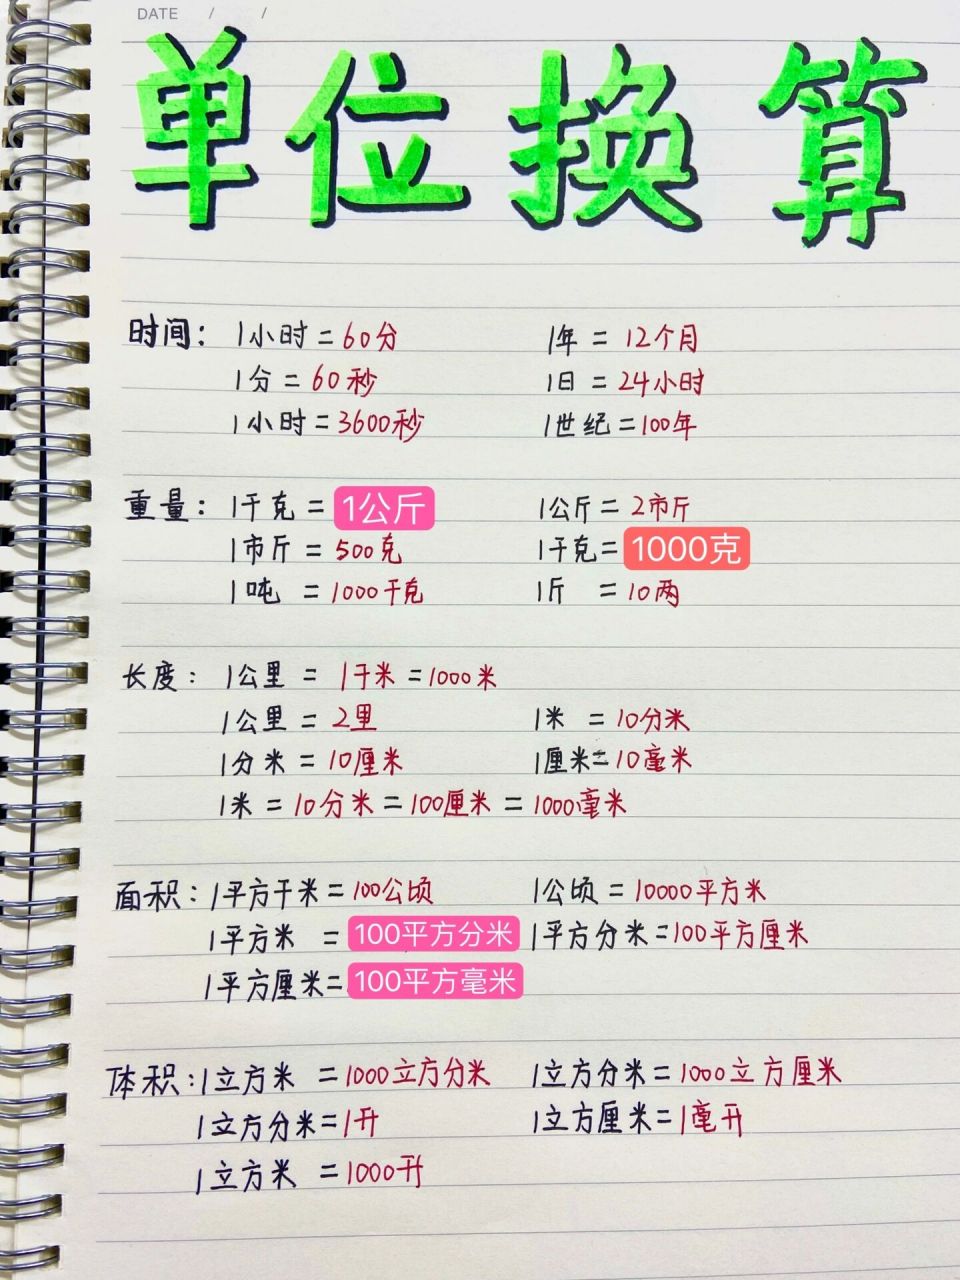 DATE / /
单位换算
时间： 1小时 = 60分 1年 = 12个月
1分 = 60秒 1日 = 24小时
1小时 = 3600秒 1世纪 = 100年
重量： 1千克 = 1公斤 1公斤 = 2市斤
1市斤 = 500克 1千克 = 1000克
1吨 = 1000千克 1斤 = 10两
长度： 1公里 = 1千米 = 1000米
1公里 = 2里 1米 = 10分米
1分米 = 10厘米 1厘米 = 10毫米
1米 = 10分米 = 100厘米 = 1000毫米
面积： 1平方千米 = 100公顷 1公顷 = 10000平方米
1平方米 = 100平方分米 1平方分米 = 100平方厘米
1平方厘米 = 100平方毫米
体积： 1立方米 = 1000立方分米 1立方分米 = 1000立方厘米
1立方分米 = 1升 1立方厘米 = 1毫升
1立方米 = 1000升